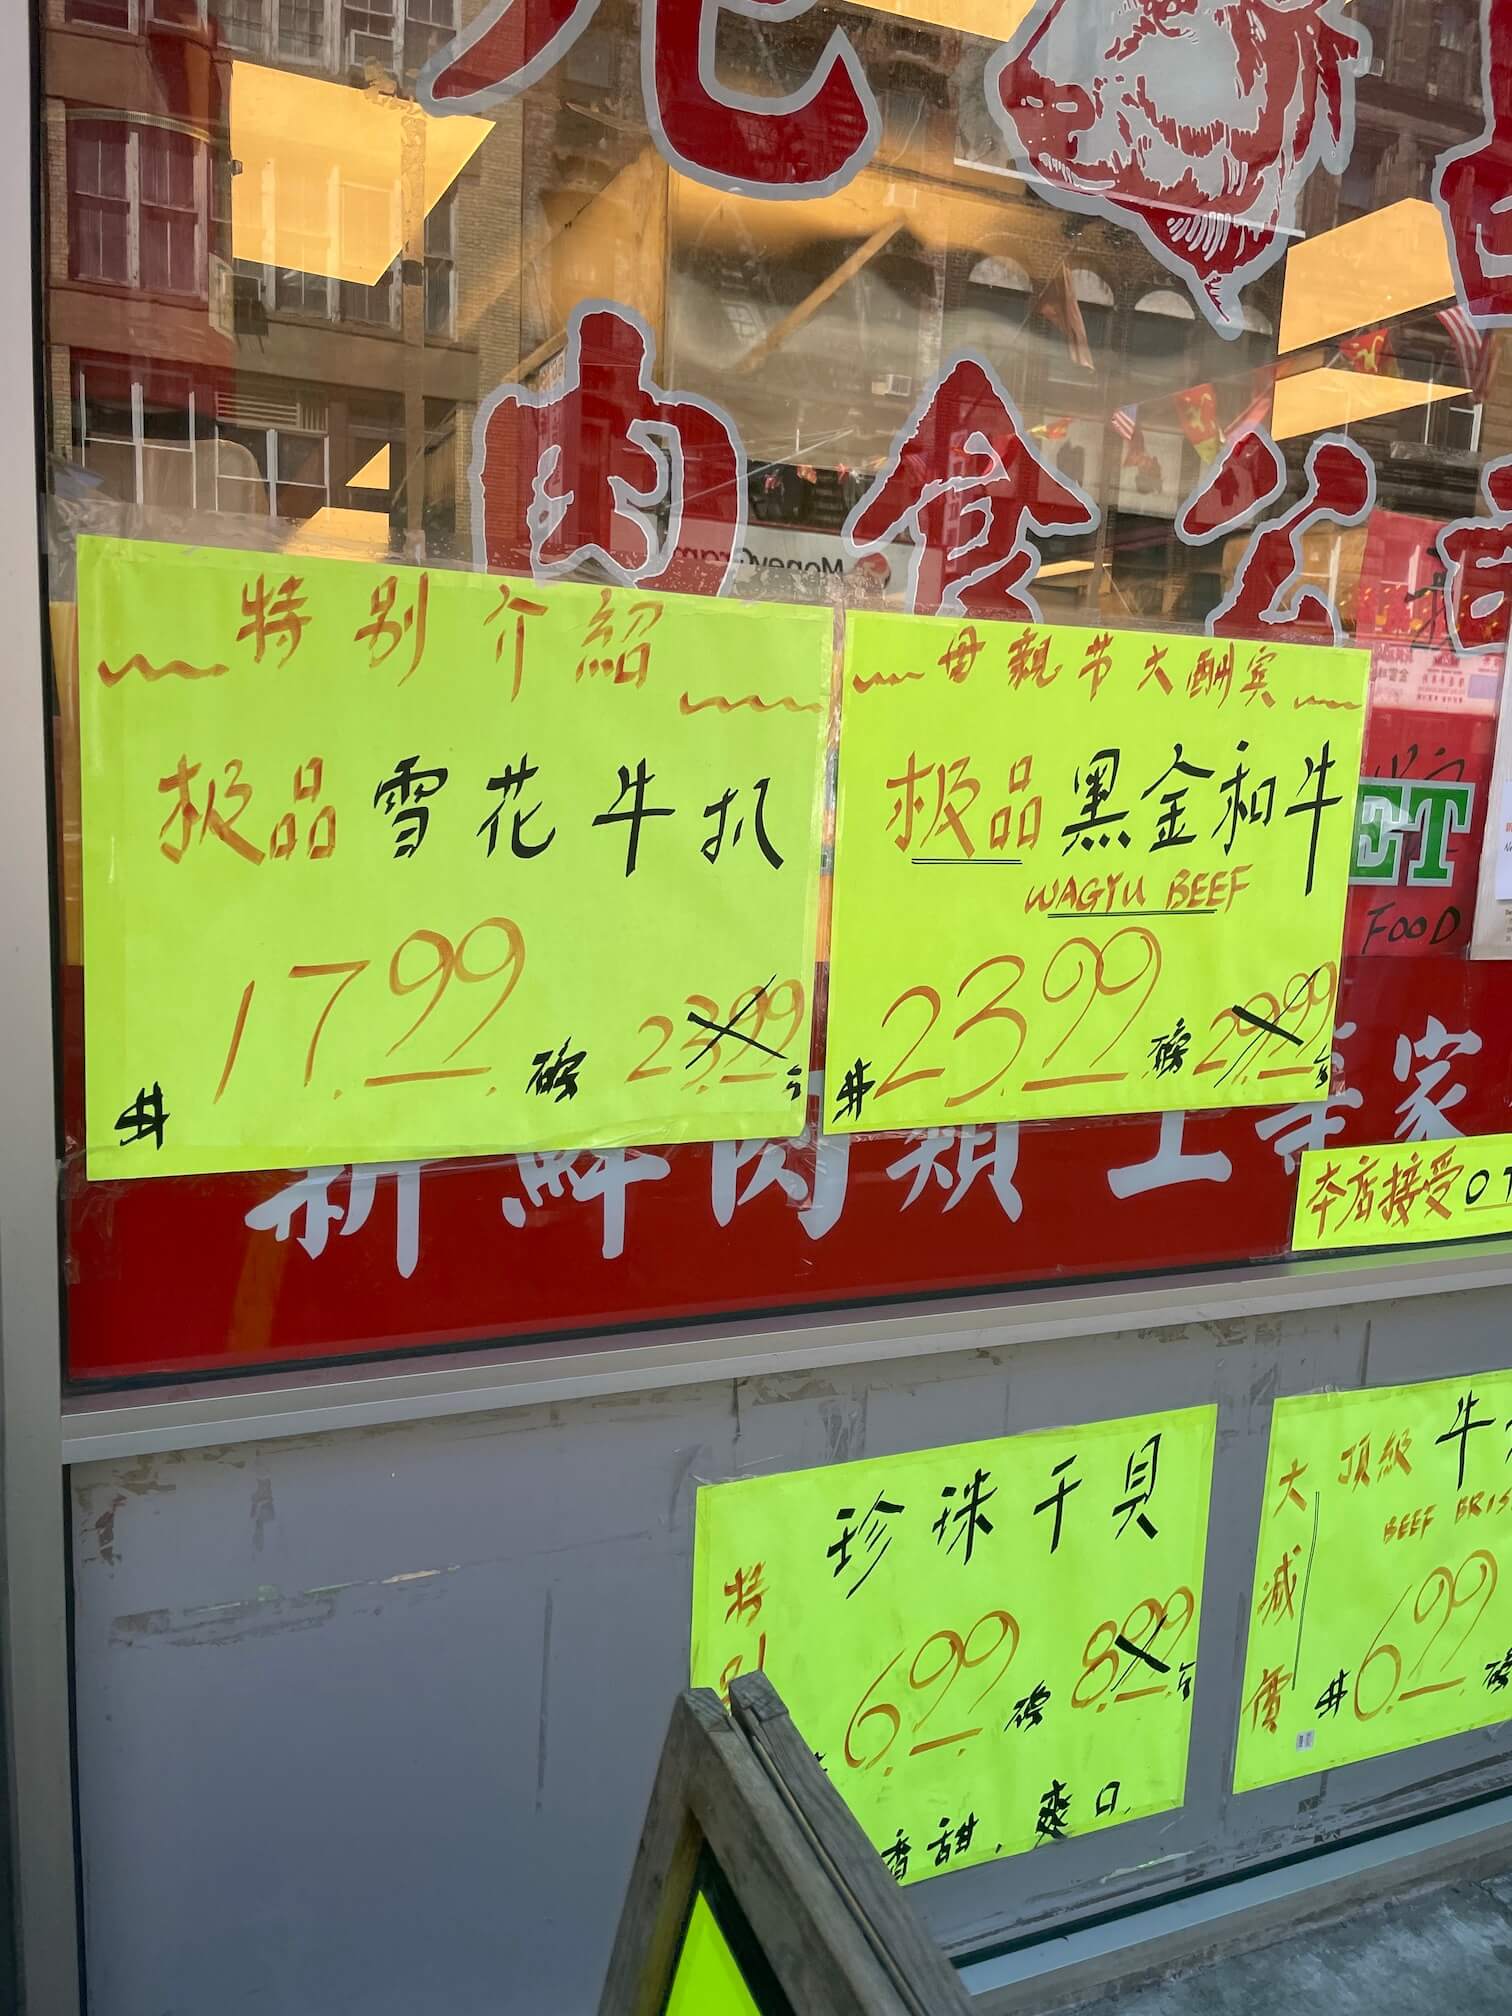 肉食公
MoneyGram
特别介紹
极品雪花牛扒
$17.99磅 23.99
母親节大酬宾
极品黑金和牛
WAGYU BEEF
$23.99磅 29.99
ET
FOOD
新鮮肉類
家
本店接受
珍珠干貝
特别
6.99磅 8.99
香甜,爽口
大減價
頂級牛
BEEF BRIS
$6.99磅